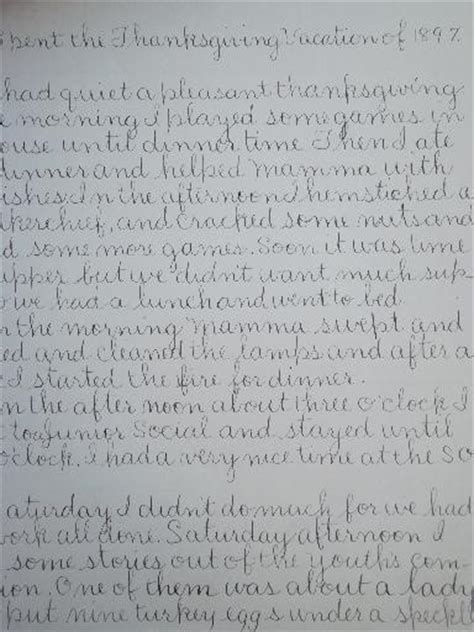 spent the Thanksgiving Vacation of 1897
had quiet a pleasant thanksgiving
e morning I played some games in
ouse until dinner time Then I ate
dinner and helped Mamma with
ishes. In the afternoon I hemstiched a
kerchief, and cracked some nuts and
d some more games. Soon it was time
upper but we didn't want much sup-
o we had a lunch and went to bed
n the morning Mamma swept and
ed and cleaned the lamps and after a
I started the fire for dinner.
n the after noon about three o'clock I
t to a Junior Social and stayed until
o'clock. I had a very nice time at the So
aturday I didn't do much for we had
work all done. Saturday afternoon I
some stories out of the youth's com-
ion. One of them was about a lady
put nine turkey eggs under a speckl